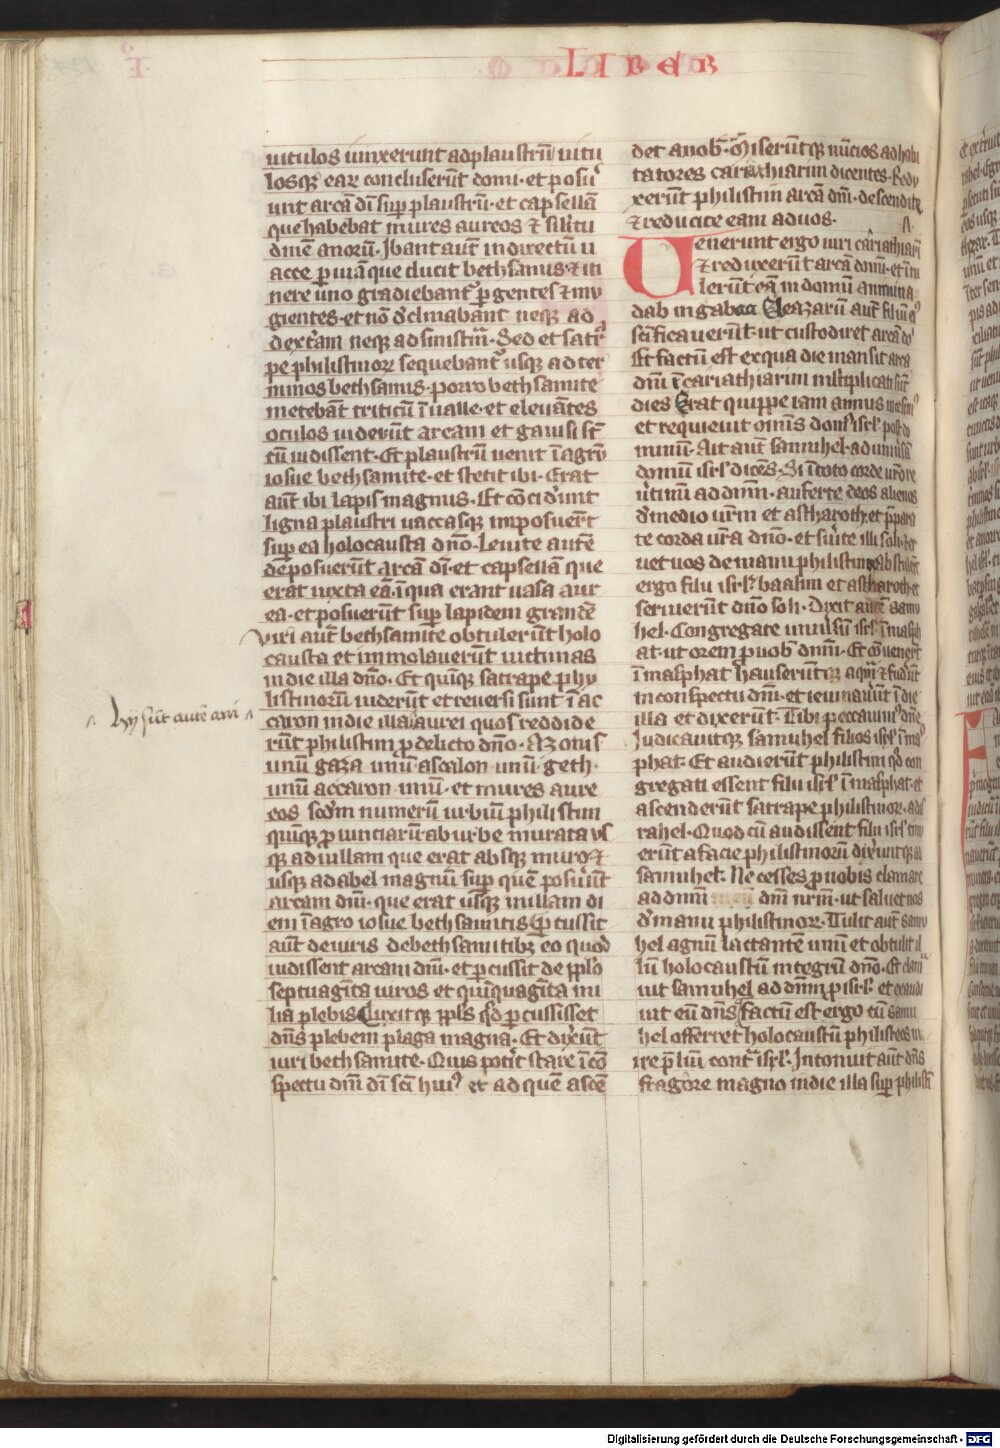 LIBER
uitulos iunxerunt ad plaustrū uitu
losq̄ eaꝝ concluserūt domi · et posu
unt arcā dī suꝑ plaustrū · et capsellā
que habebat mures aureos ⁊ silitu
dinē anorū · Ibant aut̄ in directū u
acce ꝑ uiā que ducit bethsamis · ⁊ iti
nere uno gradiebant̉ ꝑgentes ⁊ mu
gientes · et nō declinabant neque ad
dextram neque ad sinistrā · Sed et satra
pe philistinoꝝ sequebant̉ usq̄ ad ter
minos bethsamis · porro bethsamite
metebāt triticū ī ualle · et eleuātes
oculos uiderūt arcam et gauisi sūt
cū uidissent · Et plaustrū uenit ī agrū
iosue bethsamite · et stetit ibi · Erat
aut̄ ibi lapis magnus · Et cōciderūt
ligna plaustri uaccasq̄ imposuer̄t
suꝑ ea holocausta dn̄o · Leuite autē
deposuerūt arcā dī · et capsellā que
erat iuxta eā · ī qua erant uasa aur
ea · et posuerūt suꝑ lapidem grandē
Viri aut̄ bethsamite obtulerūt holo
causta et immolauerūt uictimas
in die illa dn̄o · Et quīq̄ satrape phy
listinorū uiderūt et reuersi sunt ī ac
caron in die illa aurei quos reddide
rūt philistim ꝓ delicto dn̄o · Azotus
unū gaza unū ascalon unū geth ·
unū accaron unū · et mures aure
eos scd̄m numerū urbiū philistim
quīq̄ ꝓuinciarū ab urbe murata us
q̄ ad uillam que erat absq̄ muro · ⁊
usq̄ ad abel magnū suꝑ quē posuer̄t
arcam dn̄i · que erat usq̄ in illam di
em ī agro iosue bethsamitis ꝑcussit
aut̄ de uiris de bethsamitibȝ eo quod
uidissent arcam dn̄i · et ꝑcussit de pplo
septuagīta uiros et quīquagīta mi
lia plebis Luxitq̄ ppls qd̄ ꝑcussisset
dn̄s plebem plaga magna · Et dixer̄t
uiri bethsamite · Quis poterit stare ī cō
spectu dn̄i dī scī hui⁹ et ad quē ascē
hy sūt autē ani
det a nob̄ · Miserūtq̄ nūcios ad habi
tatores cariathiarim dicentes · Redu
xerūt philistim arcā dn̄i · descendite
⁊ reducite eam ad uos ·
Uenerunt ergo uiri cariathiarī
⁊ reduxerūt arcā domī · et ītu
lerūt eā in domū aminna
dab in gabaa Eleazarū aut̄ filiū e⁹
sc̄ificauerūt · ut custodiret arcā dn̄i
Et factū est ex qua die mansit arca
dn̄i ī cariathiarim mltiplicati sūt
dies Erat quippe iam annus uicesim⁹
et requieuit omīs dom⁹ isrl̄ post do
minū · Ait aut̄ samuhel · ad uniūsā
domū isrl̄ dicēs · Si ī toto corde ur̄o re
uertimī ad dn̄m · auferte deos alienos
de medio ur̄m et astharoth · et p̄para
te corda ur̄a dn̄o · et seruite illi soli · ⁊ er
uet uos de manu philistim abstuler̄t
ergo filii isrl̄ baalim et astharoth · et
seruierūt dn̄o soli · Dixit autē samu
hel · Congregate uniūsū isrl̄ ī masph
at · ut orem ꝓ uob̄ dn̄m · Et cōuener̄t
ī masphat hauserūtq̄ aquā ⁊ fuder̄t
in conspectu dn̄i · et ieiunauer̄t ī die
illa et dixerūt · Tibi peccauim⁹ dn̄e
Iudicauitq̄ samuhel filios isrl̄ ī mas
phat · Et audierūt philistim qd̄ con
gregati essent filii isrl̄ ī masphat · et
ascenderūt satrape philistinoꝝ · ad is
rahel · Quod cū audissent filii isrl̄ timu
erūt a facie philistinorū dixeruntq̄ ad
samuhel · Ne cesses ꝓ nobis clamare
ad dn̄m dn̄m nr̄m · ut saluet nos
de manu philistinoꝝ · Tulit aut̄ samu
hel agnū lactantē unū et obtulit il
lū holocaustū integrū dn̄o · Et clama
uit samuhel ad dn̄m ꝓ isrl̄ · et exaudi
uit eū dn̄s factū est ergo cū samu
hel offerret holocaustū philisteos in
ire p̄liū contra isrl̄ · Intonuit aut̄ dn̄s
fragore magno in die illa suꝑ philistī
Digitalisierung gefördert durch die Deutsche Forschungsgemeinschaft - DFG